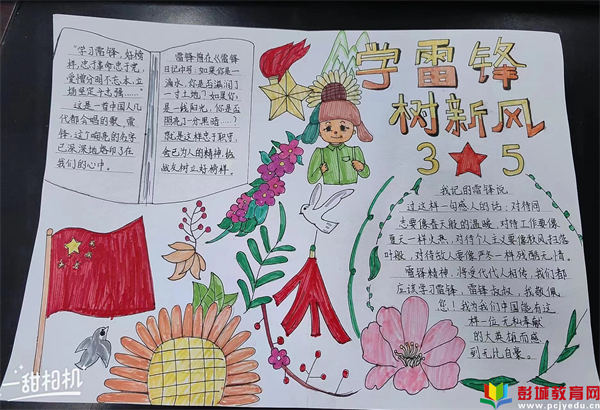 学雷锋
树新风
3★5
"学习雷锋,好榜
样,忠于革命忠于党,
爱憎分明不忘本,立
场坚定斗志强……"
这是一首中国人几
代都会唱的歌。雷
锋,这个响亮的名字
已深深地烙印在
我们的心中。
雷锋曾在《雷锋
日记》中写:如果你是一
滴水,你是否滋润了
一寸土地?如果你
是一线阳光,你是否
照亮了一分黑暗……?
就是这样忠于职守,
舍己为人的精神,给
战友树立好榜样。
我记的雷锋说
过这样一句感人的话:对待同
志要像春天般的温暖,对待工作要像
夏天一样火热,对待个人主义要像秋风扫落
叶般,对待敌人要像严冬一样残酷无情。
雷锋精神,将受代代人相传,我们都
应该学习雷锋,雷锋叔叔,我敬佩
您!我为我们中国能有这
样一位无私奉献
的大英雄而感
到无比自豪。
甜相机
彭城教育网
www.pcjyedu.cn